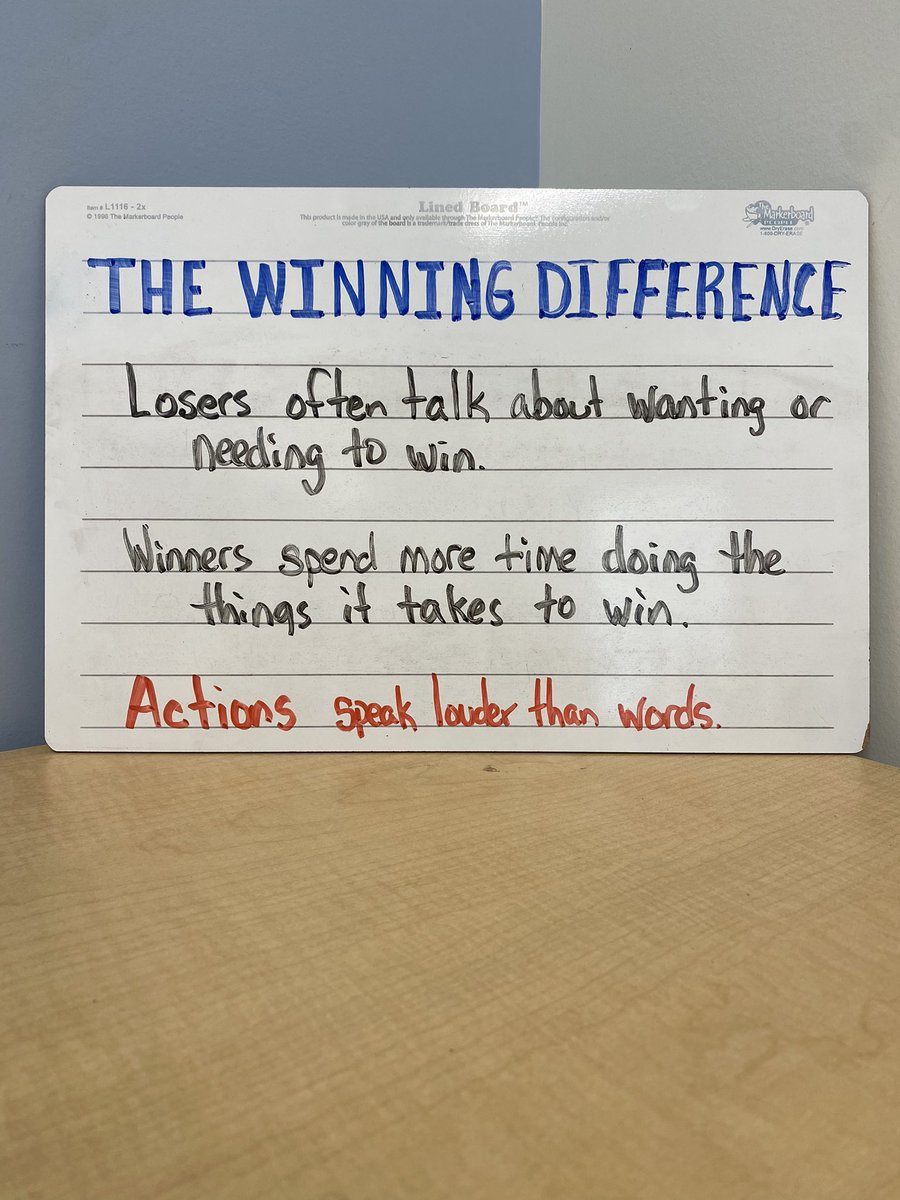 Item # L1116 - 2x
© 1998 The Markerboard People
Lined Board™
This product is made in the USA and only available through The Markerboard People. The configuration and/or
color gray of the board is a trademark/trade dress of The Markerboard People Inc.
The Markerboard
PEOPLE
www.DryErase.com
1-800-DRY-ERASE
THE WINNING DIFFERENCE
Losers often talk about wanting or
needing to win.
Winners spend more time doing the
things it takes to win.
Actions speak louder than words.